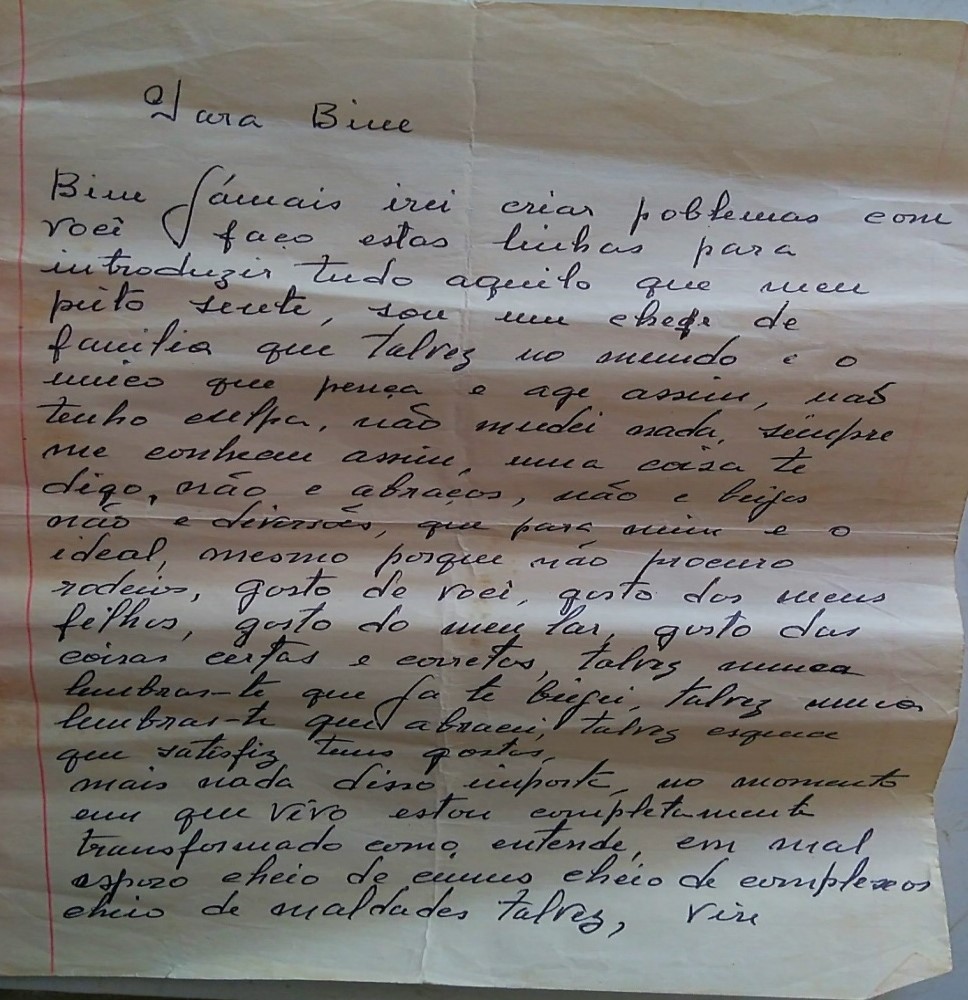 Para Bine
Bine Jámais irei criar poblemas com
você faço estas linhas para
introduzir tudo aquilo que meu
peito sente, sou um chefe de
familia que talvez no mundo e o
unico que pença e age assim, não
tenho culpa, não mudei nada, sempre
me conheceu assim, uma coisa te
digo, não e abraços, não e beijos
não e diversões, que para mim e o
ideal, mesmo porque não procuro
rodeios, gosto de você, gosto dos meus
filhos, gosto do meu lar, gosto das
coisas certas e corretas, talvez nunca
lembras-te que Ja te beijei, talvez nunca
lembras-te que abracei, talvez esquece
que satisfiz teus gostos,
mais nada disso importa, no momento
em que vivo estou completamente
transformado como, entende, em mal
espozo cheio de ciumes cheio de complexos
cheio de maldades talvez,